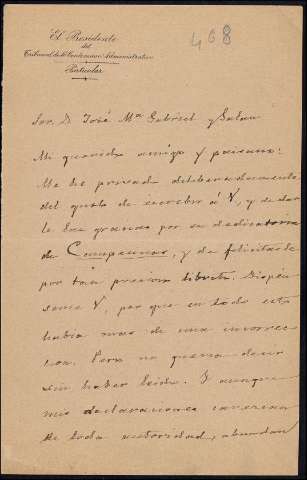 El Presidente
del
Tribunal de lo Contencioso Administrativo
Particular
408
Sor. D. José Mª Gabriel y Galan
Mi querido amigo y paisano:
Me he privado deliberadamente
del gusto de escribir á V, y de dar
le las gracias por su dedicatoria
de Campesinas, y de felicitarle
por tan precioso librito. Dispén
seme V, por que en todo esto
habia mas de una incorrec
cion. Pero no queria decir
sin haber leido. Y aunque
mis declaraciones carezcan
de toda autoridad, abundan